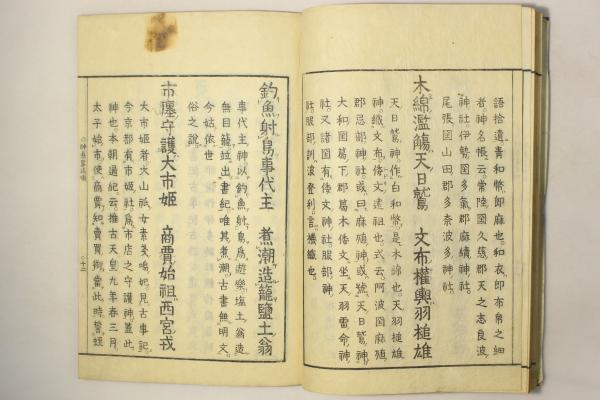 語拾遺青和幣卽麻也。和衣卽布帛之細
者神名帳云。常陸國久慈郡天之志良波
神社伊勢國多氣郡麻續神社。
尾張國山田郡多奈波多神社。
木綿濫觴天日鷲 文布權輿羽槌雄
天日鷲神作白和幣是木綿也。天羽槌雄
神織文布倭文遠祖也式云阿波國麻殖
郡忌部神社或曰麻殖神或號天日鷲神
大和國葛下郡葛木倭文坐天羽雷命神
社又諸國有倭文神社服部神
社服部訓波登利言機織也。
釣魚射鳥事代主 煮潮造籠鹽土翁
事代主神以釣魚射鳥為遊樂塩土翁造
無目籠竝出書紀唯其煮潮古書無明文
今姑依世
俗之說。
市廛守護大市姬 商賈始祖西宮戎
大市姬者大山祇女素戔嗚妃見古事記
今京都有市姬社為市店之守護神蓋此
神也本朝通紀云推古天皇九年春三月
太子始市使商賈知賣買術當此時誓蛭